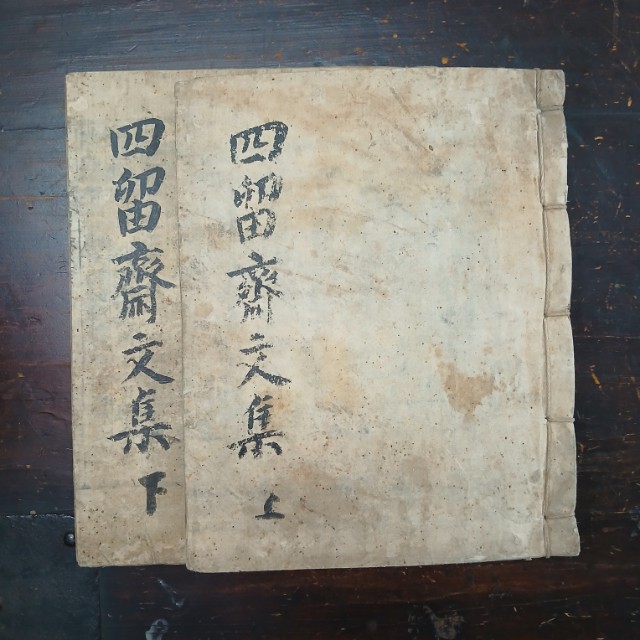 四留齋文集 上
四留齋文集 下